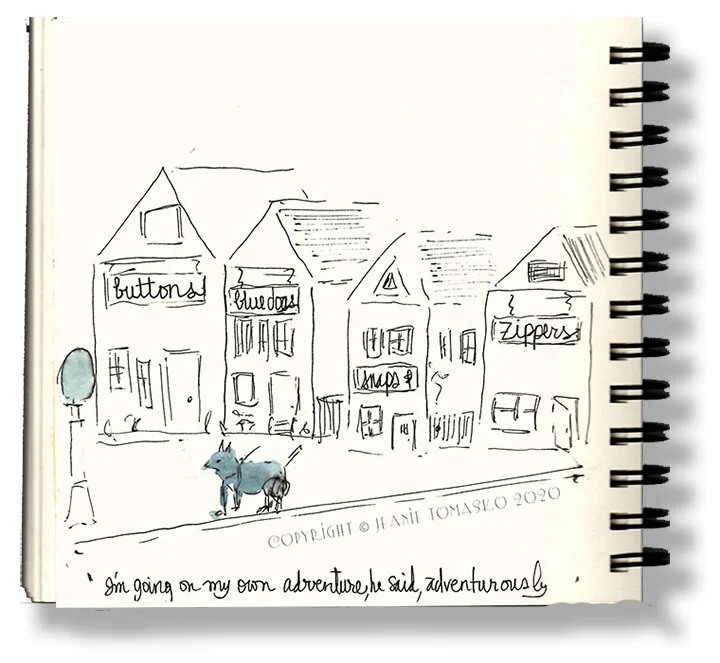 buttons
bluedogs
snaps &
Zippers
COPYRIGHT © JEANIE TOMASKO 2020
'I'm going on my own adventure, he said, adventurously